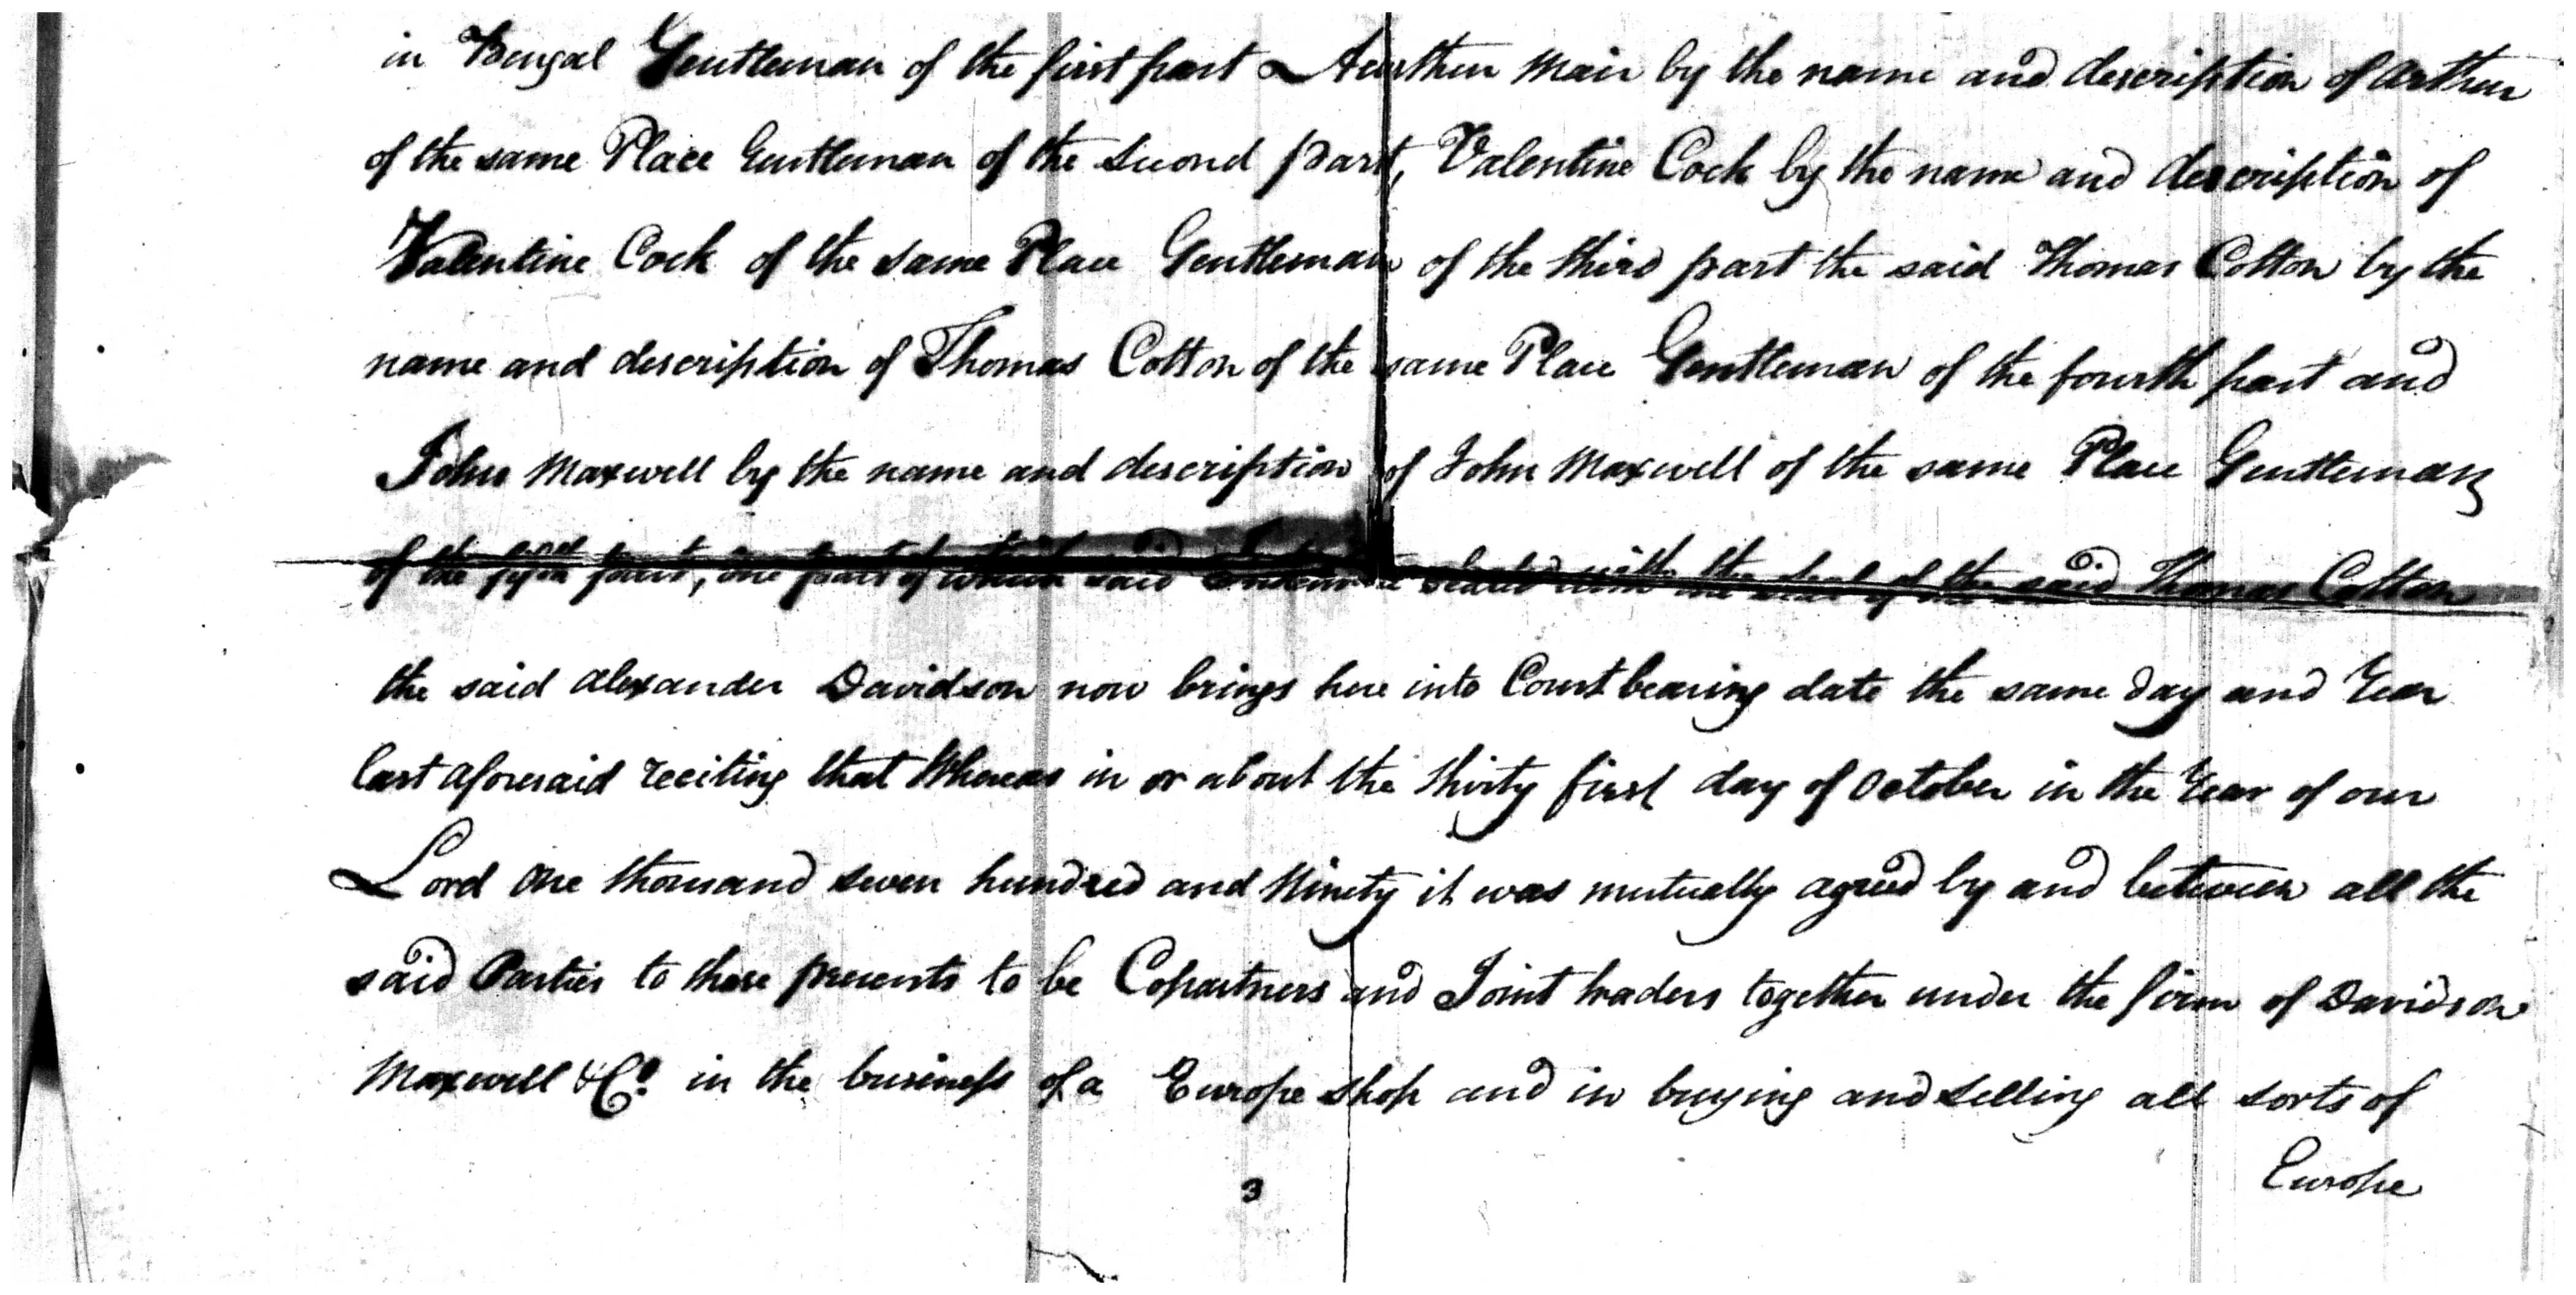 in Bengal Gentleman of the first part Aurthur Mair by the name and description of Arthur
of the same Place Gentleman of the Second part, Valentine Cock by the name and description of
Valentine Cock of the same Place Gentleman of the third part the said Thomas Cotton by the
name and description of Thomas Cotton of the same Place Gentleman of the fourth part and
John Maxwell by the name and description of John Maxwell of the same Place Gentleman
of the fifth part, one part of which said Indenture sealed with the seal of the said Thomas Cotton
the said Alexander Davidson now brings here into Court bearing date the same day and Year
last aforesaid reciting that Whereas in or about the thirty first day of October in the Year of our
Lord One thousand seven hundred and Ninety it was mutually agreed by and between all the
said Parties to these presents to be Copartners and Joint traders together under the firm of Davidson
Maxwell & Co. in the business of a Europe shop and in buying and selling all sorts of
Europe
3